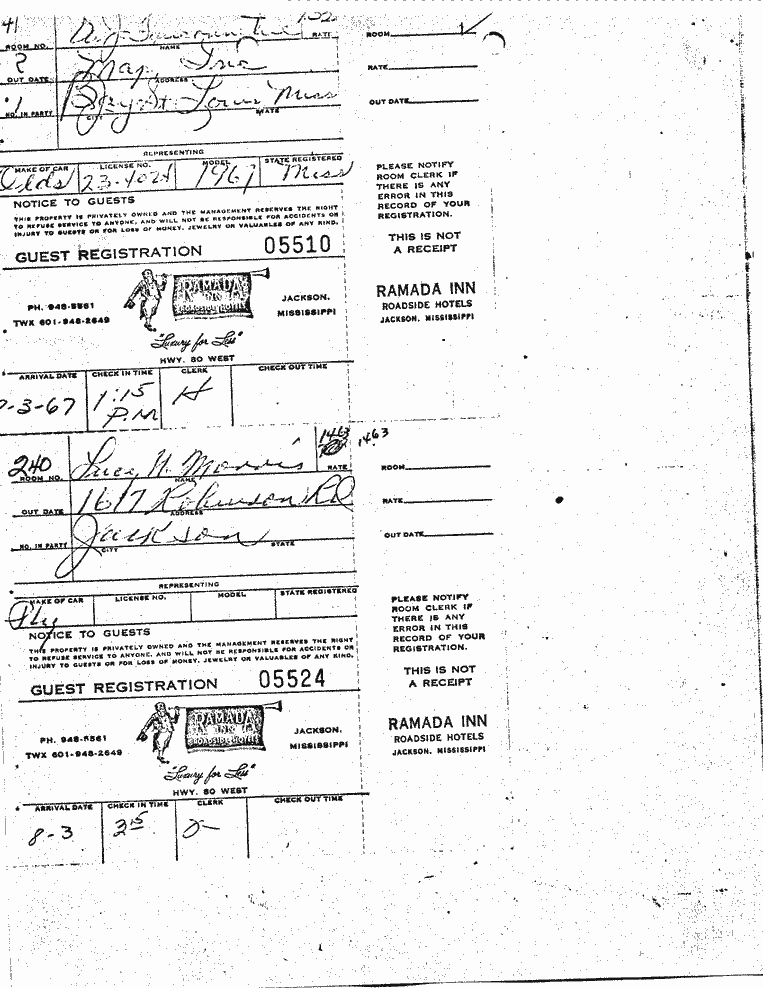 41
ROOM NO. NAME RATE
OUT DATE ADDRESS
Map Inc
1 Bay St Louis Miss
NO. IN PARTY CITY STATE
REPRESENTING
MAKE OF CAR LICENSE NO. MODEL STATE REGISTERED
Olds 23-4024 1967 Miss
NOTICE TO GUESTS
THIS PROPERTY IS PRIVATELY OWNED AND THE MANAGEMENT RESERVES THE RIGHT
TO REFUSE SERVICE TO ANYONE, AND WILL NOT BE RESPONSIBLE FOR ACCIDENTS OR
INJURY TO GUESTS OR FOR LOSS OF MONEY, JEWELRY OR VALUABLES OF ANY KIND.
GUEST REGISTRATION 05510
RAMADA
INN
ROADSIDE HOTELS
PH. 948-5561
TWX 601-948-2649
JACKSON,
MISSISSIPPI
"Luxury for Less"
HWY. 80 WEST
ARRIVAL DATE CHECK IN TIME CLERK CHECK OUT TIME
-3-67 1:15 H
P.M
ROOM
RATE
OUT DATE
PLEASE NOTIFY
ROOM CLERK IF
THERE IS ANY
ERROR IN THIS
RECORD OF YOUR
REGISTRATION.
THIS IS NOT
A RECEIPT
RAMADA INN
ROADSIDE HOTELS
JACKSON, MISSISSIPPI
1463 1463
240 Lucy H. Morris
ROOM NO. NAME RATE
1617 Robinson Rd
OUT DATE ADDRESS
Jackson
NO. IN PARTY CITY STATE
REPRESENTING
MAKE OF CAR LICENSE NO. MODEL STATE REGISTERED
Ply
NOTICE TO GUESTS
THIS PROPERTY IS PRIVATELY OWNED AND THE MANAGEMENT RESERVES THE RIGHT
TO REFUSE SERVICE TO ANYONE, AND WILL NOT BE RESPONSIBLE FOR ACCIDENTS OR
INJURY TO GUESTS OR FOR LOSS OF MONEY, JEWELRY OR VALUABLES OF ANY KIND.
GUEST REGISTRATION 05524
RAMADA
INN
ROADSIDE HOTELS
PH. 948-5561
TWX 601-948-2649
JACKSON,
MISSISSIPPI
"Luxury for Less"
HWY. 80 WEST
ARRIVAL DATE CHECK IN TIME CLERK CHECK OUT TIME
8-3
ROOM
RATE
OUT DATE
PLEASE NOTIFY
ROOM CLERK IF
THERE IS ANY
ERROR IN THIS
RECORD OF YOUR
REGISTRATION.
THIS IS NOT
A RECEIPT
RAMADA INN
ROADSIDE HOTELS
JACKSON, MISSISSIPPI